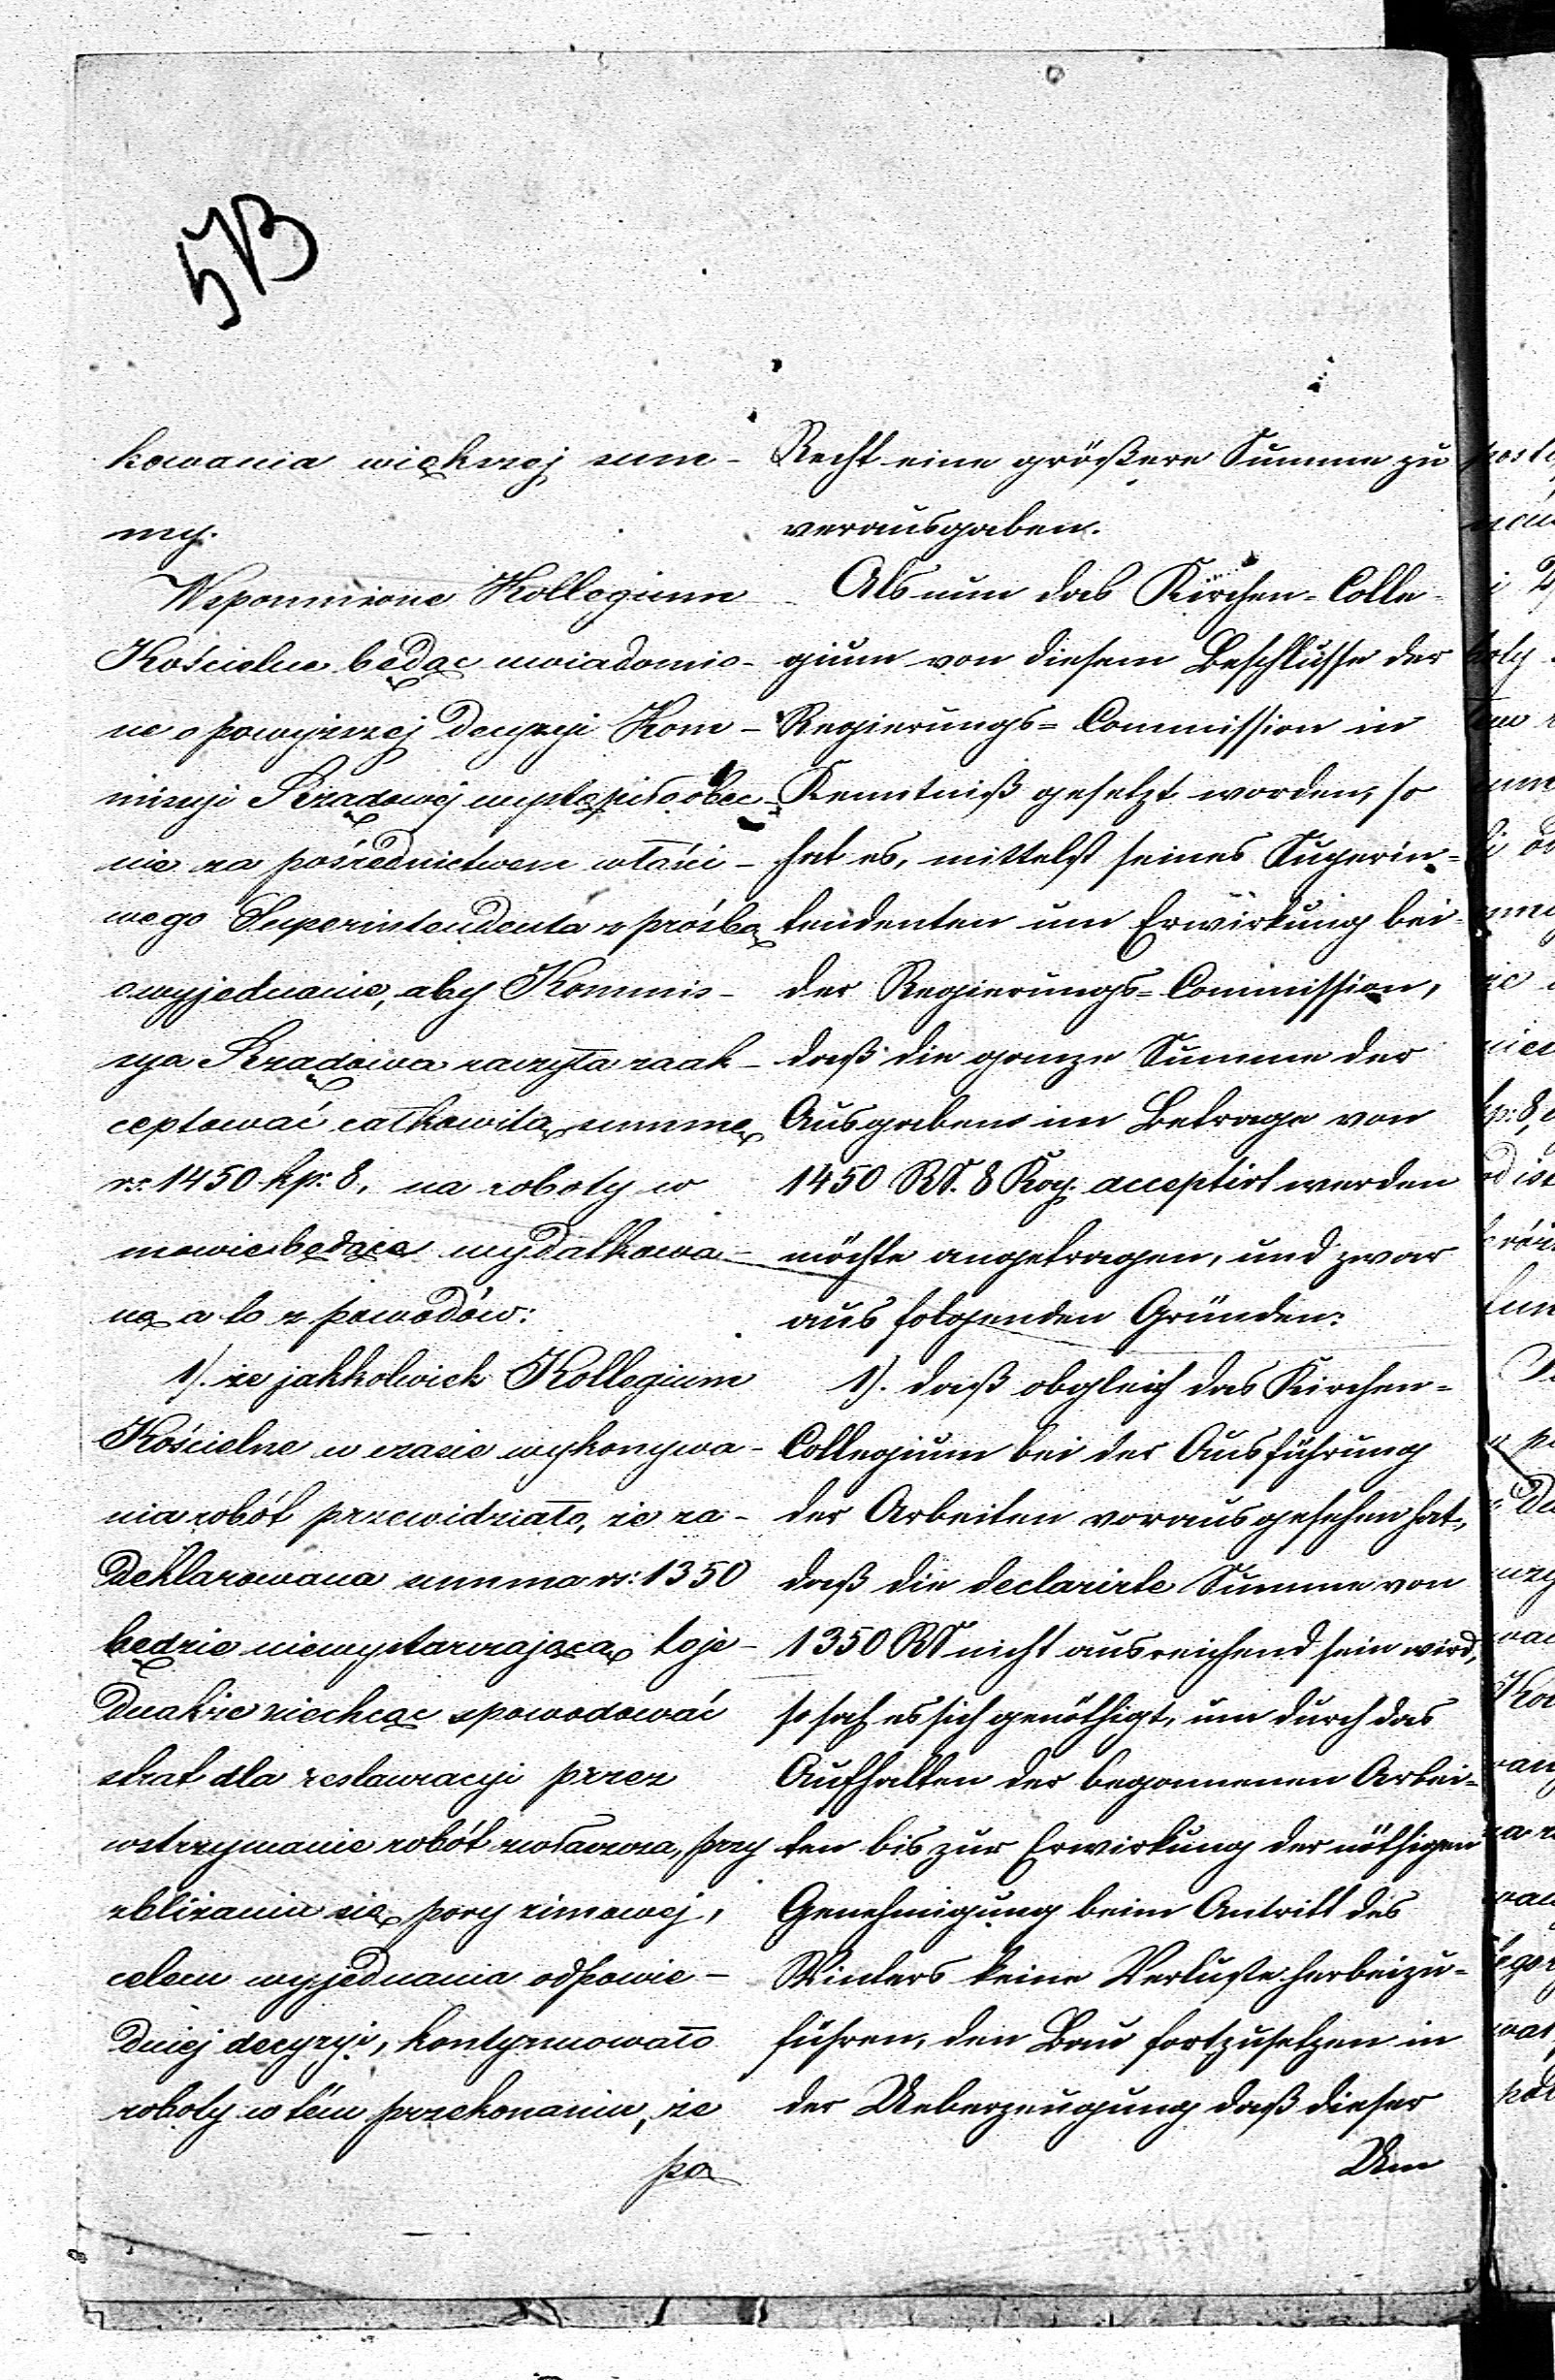 5B
kowania większej sum-
my.
Wspomnione Kollegium
Kościelne będąc uwiadomio-
ne o powyższej decyzyi Kom-
missyi Rządowej wystąpiło obec-
nie za pośrednictwem właści-
wego Superintendenta z prośbą
o wyjednanie, aby Kommis-
sya Rządowa raczyła zaak-
ceptować całkowitą summę
rs: 1450 kp: 8. na roboty w
mowie będące wydatkowa-
ną a to z powodów:
1). że jakkolwiek Kollegium
Kościelne w czasie wykonywa-
nia robót przewidziało, że za-
deklarowana summa rs: 1350
będzie niewystarczającą toje-
dnakże niechcąc spowodować
strat dla restauracyi przez
wstrzymanie robót zwłaszcza, przy
zbliżaniu się pory zimowej,
celem wyjednania odpowie-
dniej decyzyi, kontynuowało
roboty w tém przekonaniu, że
po
Recht eine größere Summe zu
verausgaben.
Als nun das Kirchen-Colle-
gium von diesem Beschlusse der
Regierungs-Commission in
Kenntniß gesetzt worden, so
hat es, mittelst seines Superin-
tendenten um Erwirkung bei
der Regierungs-Commission,
daß die ganze Summe der
Ausgaben im Betrage von
1450 RS. 8 Kop. acceptirt werden
möchte angetragen, und zwar
aus folgenden Gründen:
1). daß obgleich das Kirchen-
Collegium bei der Ausführung
der Arbeiten vorausgesehen hat,
daß die declarirte Summe von
1350 RS nicht ausreichend sein wird,
so sah es sich genöthigt, um durch das
Aufhalten der begonnenen Arbei-
ten bis zur Erwirkung der nöthigen
Genehmigung beim Antritt des
Winters keine Verluste herbeizu-
führen, den Bau fortzusetzen in
der Ueberzeugung daß dieser
Um